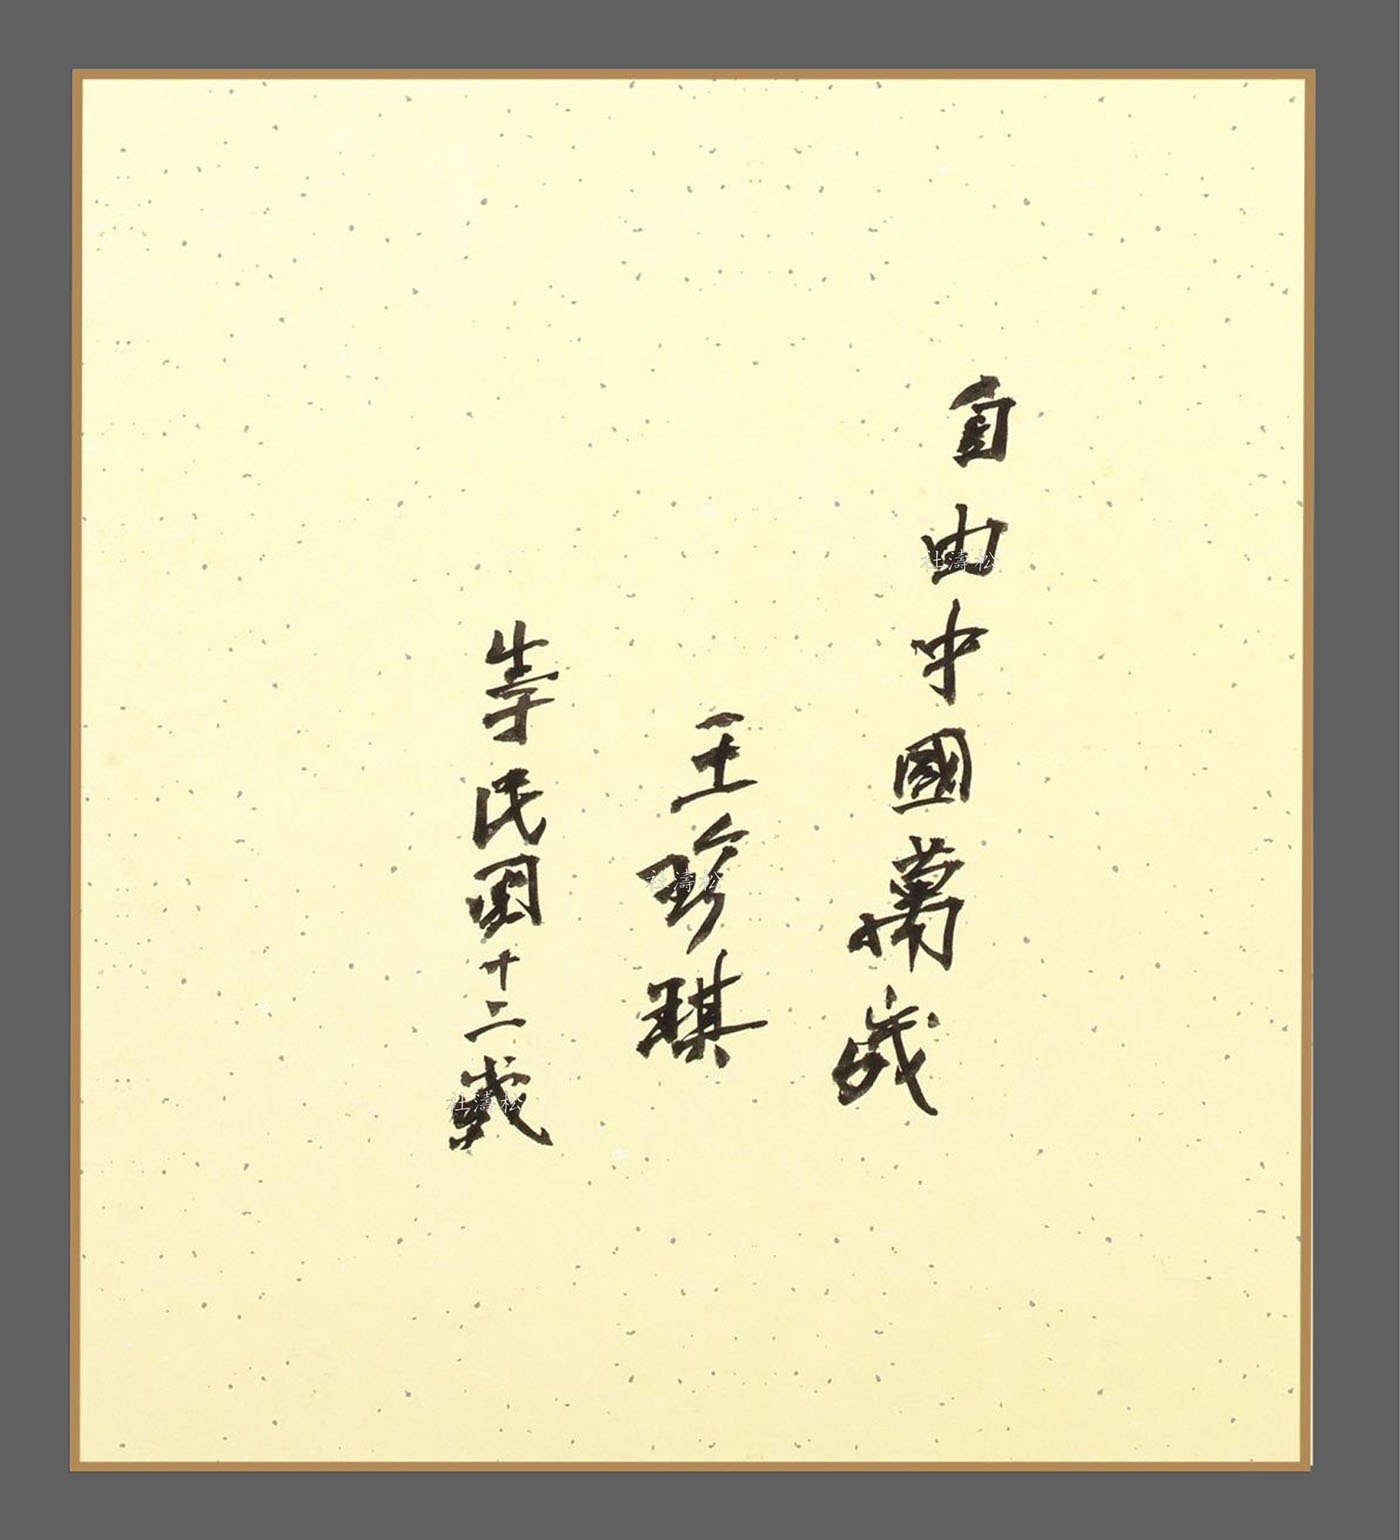 自由中國萬歲
王珍琪
時民國十二歲
杜濤松
杜濤松
杜濤松